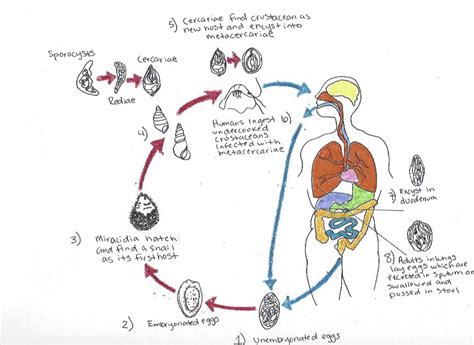 5) Cercariae find crustacean as
new host and encyst into
metacercariae
Sporocysts
Cercariae
Rediae
4)
Humans ingest 6)
undercooked
crustaceans
infected with
metacercariae
7) Excyst in
duodenum
3) Miracidia hatch
and find a snail
as its first host
8) Adults in lungs
lay eggs which are
excreted in sputum or
swallowed and
passed in stool
2) Embryonated eggs
1) Unembryonated eggs